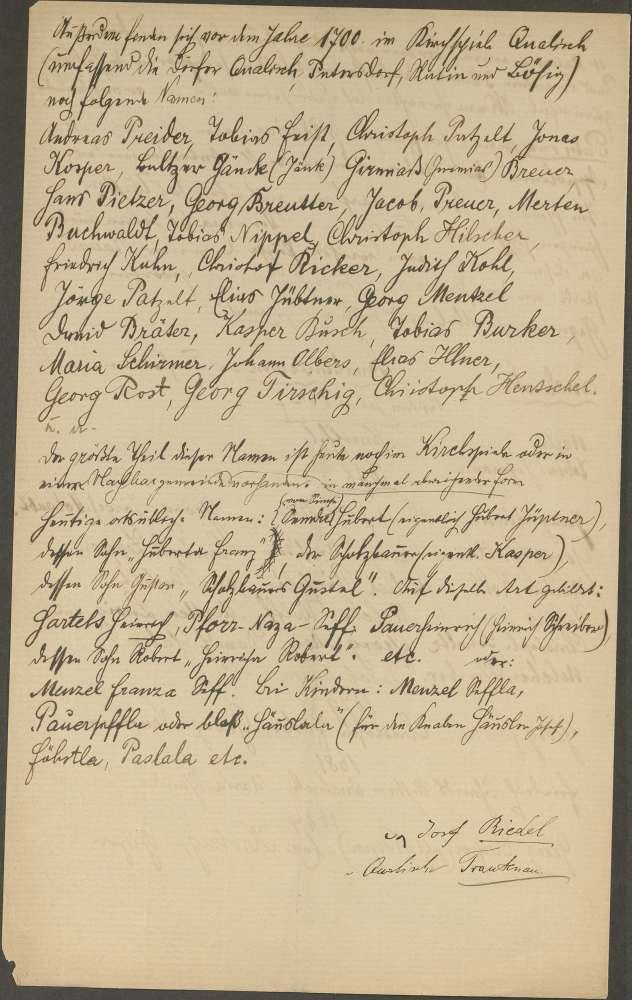 Außerdem fanden sich vor dem Jahre 1700 im Kirchspiele Qualisch
(umfassend die Dörfer Qualisch, Petersdorf, Slatin und Bösig)
noch folgende Namen:
Andreas Preider, Tobias Feist, Christoph Patzelt, Jonas
Kosper, Baltzer Jänck (Jänk) Girmiaß (Jeremias) Breuer
Hans Pietzer, Georg Breutter, Jacob Preuer, Merten
Buchwaldt, Tobias Nippel, Christoph Hilscher,
Friedrich Kuhn, Christof Ricker, Judith Kohl,
Jörge Patzelt, Elias Jübtner, Georg Mentzel
David Bräter, Kasper Busch, Tobias Burker,
Maria Schirmer, Johann Olbers, Elias Illner,
Georg Rost, Georg Tirschig, Christoph Hensschel.
u. a.
Der größte Theil dieser Namen ist heute noch im Kirchspiele oder in
einer Nachbargemeinde vorhanden: in manchmal abweichender Form
Heutige ortsübliche Namen: Hubert (eigentlich Hubert Jüptner),
dessen Sohn „Huberta Franz", der Scholzbauer (eigentl. Kasper),
dessen Sohn Gustav „Scholzbauers Gustel". Auf dieselbe Art gebildet:
Hartels Heinrich, Pforr-Naza-Seff. Pauerheinrich (Heinrich Schreiber)
dessen Sohn Robert „Heinricha Robert". etc. oder:
Menzel Franza Seff. Bei Kindern: Menzel Seffla,
Pauerseffla oder bloß „Häuslala" (für den Knaben Häusler Josef),
Paslala etc.
Josef Riedel
Qualisch Trautenau